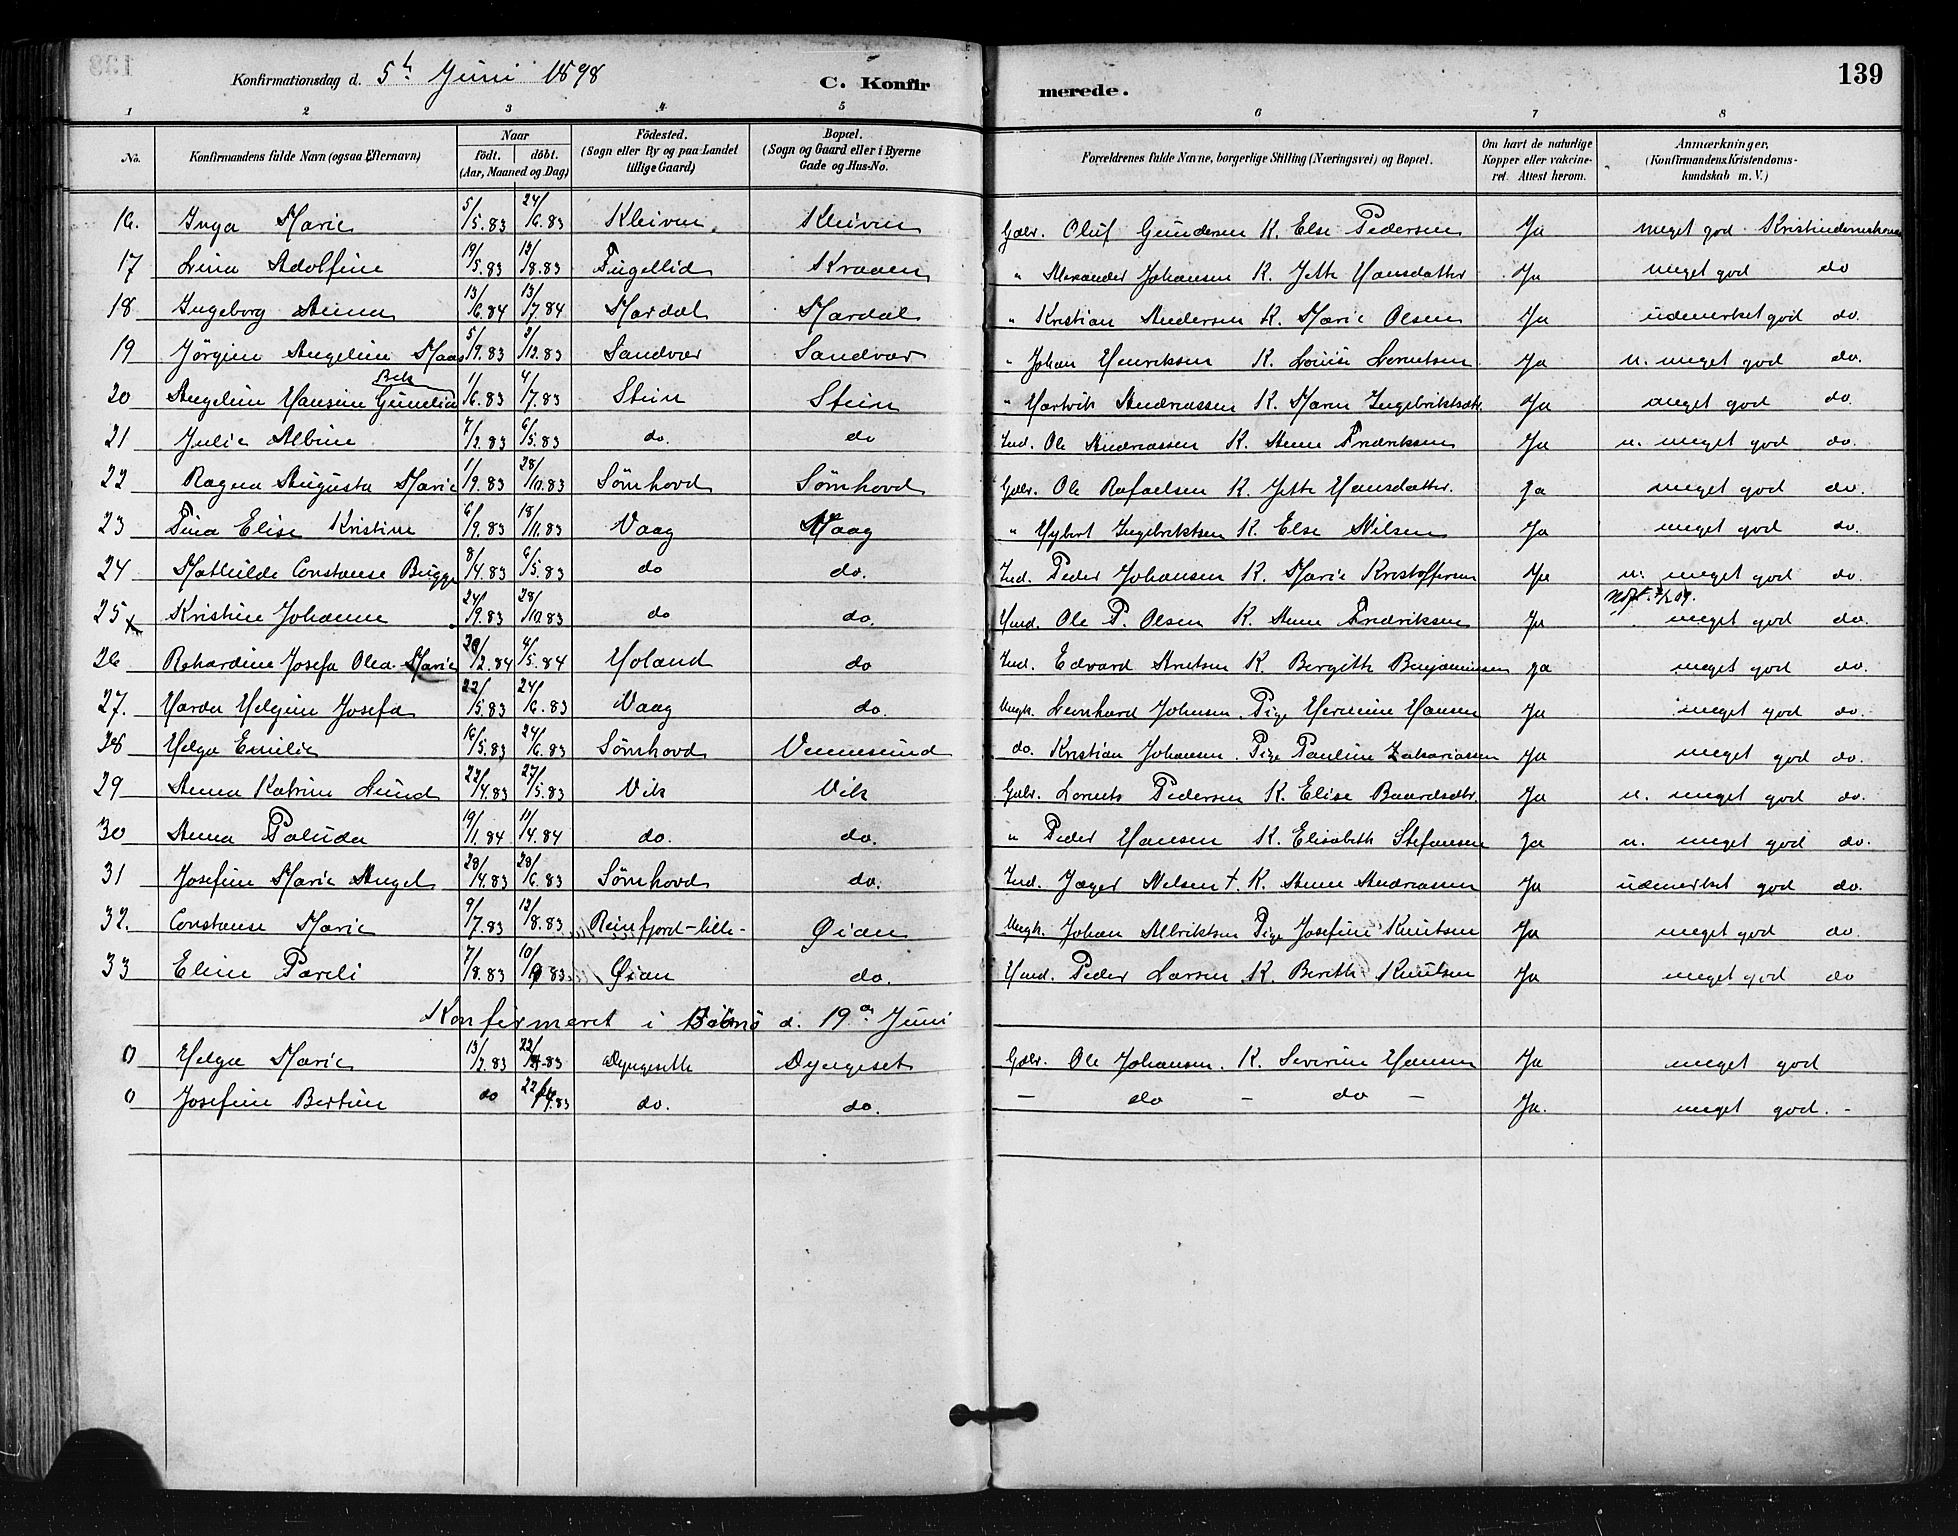 139
Konfirmationsdag d. 5te Juni 1898 C. Konfirmerede.
1 2 3 4 5 6 7 8
No. Konfirmandens fulde Navn (ogsaa Efternavn) Naar födt. döbt. (Aar, Maaned og Dag) Födested. (Sogn eller By og paa Landet tillige Gaard) Bopæl. (Sogn og Gaard eller i Byerne Gade og Hus-No. Forældrenes fulde Navne, borgerlige Stilling (Næringsvei) og Bopæl. Om havt de naturlige Kopper eller vakcineret. Attest herom. Anmærkninger, (Konfirmandens Kristendomskundskab m. V.)
16. Inga Marie 5/5.83 24/6.83 Kleiven Kleiven Gdbr. Oluf Gundersen K. Else Pedersen Ja meget god
17 Lina Adolfine 19/5.83 12/8.83 Tugellid Kraaen " Alexander Johansen K. Jette Hansdatter Ja meget god do
18 Ingeborg Anna 13/6.84 13/7.84 Mardal Mardal " Kristian Andersen K. Marie Olsen Ja udmerket god do.
19 Jørgine Angeline Maas 5/9.83 2/12.83 Sandvær Sandvær " Johan Henriksen K. Louise Lorntsen Ja n. meget god do.
20 Angeline Hansine Gunelia Bek 1/6.83 4/7.83 Stein Stein " Hartvik Andreassen K. Maren Ingebriktsdtr. Ja meget god do.
21 Julie Albine 7/2.83 6/5.83 do. do Ind. Ole Andreassen K. Anne Fredriksen Ja n. meget god do.
22 Ragna Augusta Marie 1/9.83 28/10.83 Sømhovd Sømhovd Gdbr. Ole Rafaelsen K. Jette Hansdatter. Ja meget god do.
23 Tina Elise Kristine 6/9.83 18/11.83 Vaag Vaag " Hybert Ingebriktsen K. Else Nilsen Ja meget god do.
24 Mathilde Constanse Bugge 8/4.83 6/5.83 do do. Ind. Peder Johansen K. Marie Kristoffersen Ja n. meget god do.
25 x Kristine Johanne 24/9.83 28/10.83 do do. Hmd. Ole P. Olsen K. Anne Fredriksen Ja meget god do.
26 Rikardine Josefa Olea Marie 20/2.84 4/5.84 Holand do Ind. Edvard Arntsen K. Bergithe Benjaminsen Ja meget god do.
27. Harda Helgine Josefa 22/5.83 24/6.83 Vaag do. Ungk. Leonhard Johnsen. Pige Hermine Hansen Ja meget god do.
28 Helga Emilie 16/5.83 24/6.83 Sømhovd Vennesund do. Kristian Johansen. Pige Pauline Zakariassen Ja meget god do.
29 Anna Katrine Lund 22/4.83 27/5.83 Vik Vik Gdbr. Lornts Pedersen K. Elise Baardsdtr. Ja n. meget god do.
30 Anna Paluda 19/1.84 11/4.84 do. do. " Peder Hansen K. Elisabeth Stefansen Ja n. meget god do.
31 Josefine Marie Angel 20/4.83 20/6.83 Sømhovd do. Ind. Jæger Nilsen † K. Anne Andreassen Ja udmerket god do.
32. Constanse Marie 9/7.83 12/8.83 Reinfjord-lille- Øian Ungk. Johan Albriktsen Pige Josefine Knutsen Ja meget god do.
33 Eline Pareli 7/8.83 10/9 83 Øian do. Hmd. Peder Larsen K. Berith Knutsen Ja meget god do
Konfirmeret i Bolmø d. 19de Juni
0 Helga Marie 13/2.83 22/4.83 Dyngeseth Dyngeset Gdbr. Ole Johansen. K. Severine Hansen Ja meget god
0 Josefine Bertine do 22/4.83 do. do. - do - do - Ja. meget god. -